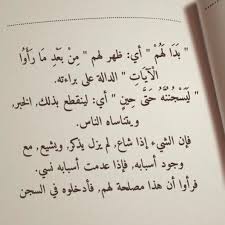 " بَدَا لَهُمْ " أي: ظهر لهم " مِنْ بَعْدِ مَا رَأَوُا
الْآيَاتِ " الدالة على براءته.
" لَيَسْجُنُنَّهُ حَتَّى حِينٍ " أي: لينقطع بذلك، الخبر،
ويتناساه الناس.
فإن الشيء إذا شاع, لم يزل يذكر, ويشيع, مع
وجود أسبابه, فإذا عدمت أسبابه نسي.
فرأوا أن هذا مصلحة لهم, فأدخلوه في السجن